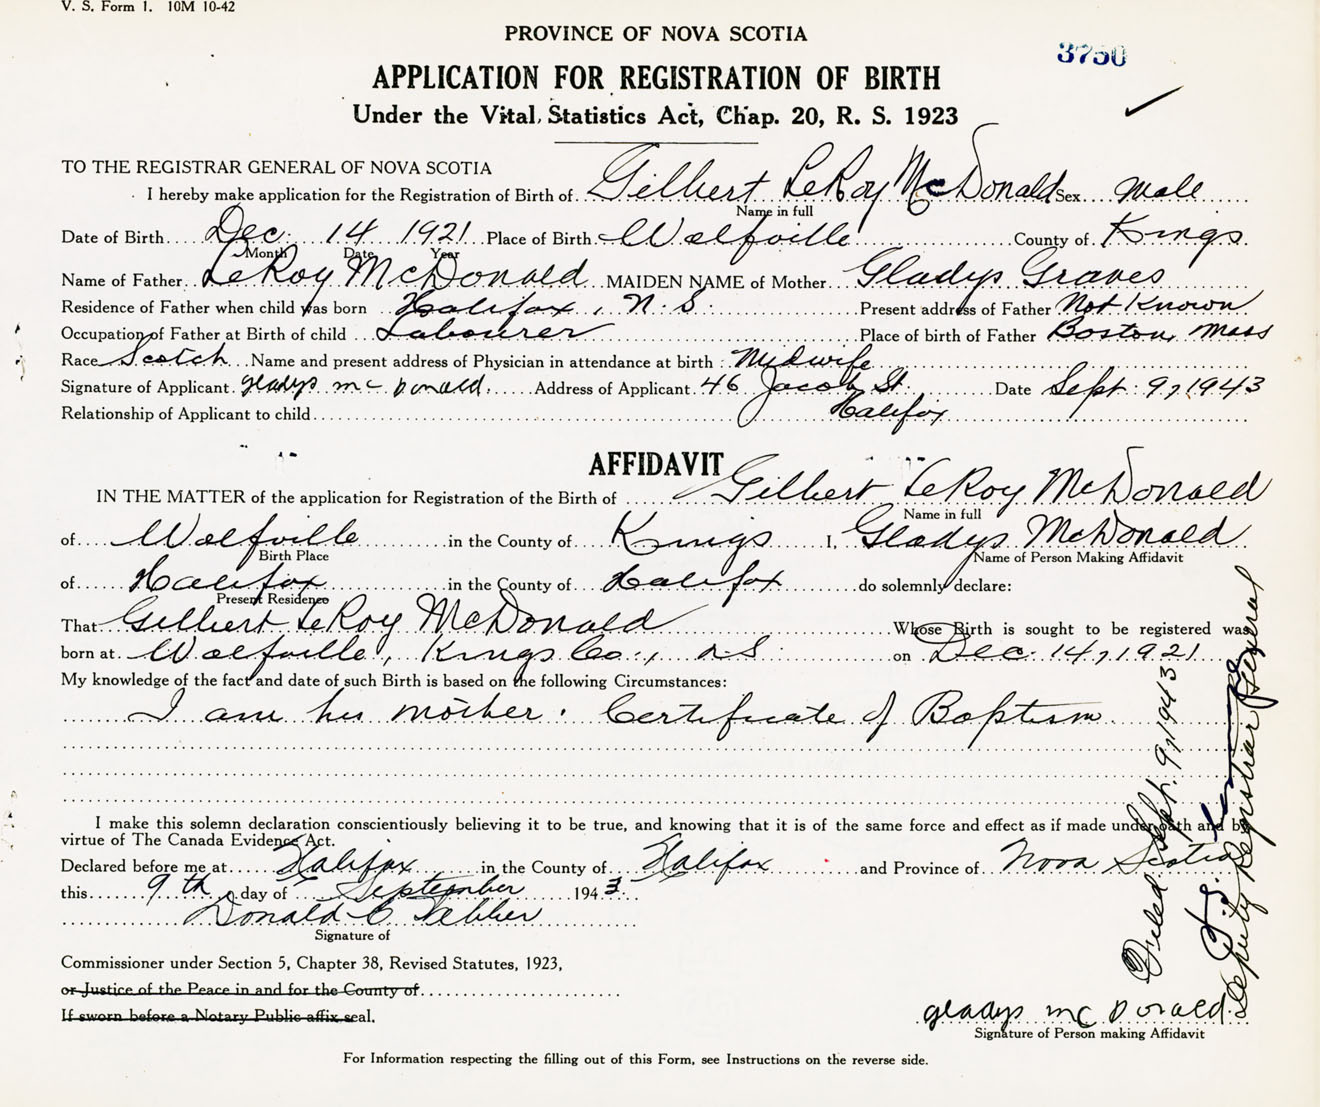 V. S. Form 1. 10M 10-42
PROVINCE OF NOVA SCOTIA
3750
APPLICATION FOR REGISTRATION OF BIRTH
Under the Vital Statistics Act, Chap. 20, R. S. 1923
TO THE REGISTRAR GENERAL OF NOVA SCOTIA
I hereby make application for the Registration of Birth of Gilbert LeRoy McDonald Sex Male
Name in full
Date of Birth Dec. 14 1921 Place of Birth Wolfville County of Kings
Month Date Year
Name of Father LeRoy McDonald MAIDEN NAME of Mother Gladys Graves
Residence of Father when child was born Halifax, N.S. Present address of Father Not Known
Occupation of Father at Birth of child Labourer Place of birth of Father Boston, Mass
Race Scotch Name and present address of Physician in attendance at birth: Midwife
Signature of Applicant gladys mc Donald. Address of Applicant 46 Jacob St. Date Sept. 9, 1943
Relationship of Applicant to child Halifax
AFFIDAVIT
IN THE MATTER of the application for Registration of the Birth of Gilbert LeRoy McDonald
Name in full
of Wolfville in the County of Kings I, Gladys McDonald
Birth Place Name of Person Making Affidavit
of Halifax in the County of Halifax do solemnly declare:
Present Residence
That Gilbert LeRoy McDonald Whose Birth is sought to be registered was
born at Wolfville, Kings Co., N.S. on Dec. 14, 1921
My knowledge of the fact and date of such Birth is based on the following Circumstances:
I am his mother. Certificate of Baptism
I make this solemn declaration conscientiously believing it to be true, and knowing that it is of the same force and effect as if made under oath and by
virtue of The Canada Evidence Act.
Declared before me at Halifax in the County of Halifax and Province of Nova Scotia
this 9th day of September 1943.
Donald C
Signature of
Commissioner under Section 5, Chapter 38, Revised Statutes, 1923,
or Justice of the Peace in and for the County of
If sworn before a Notary Public affix seal.
gladys mc Donald.
Signature of Person making Affidavit
For Information respecting the filling out of this Form, see Instructions on the reverse side.
Filed Sept. 9, 1943
Deputy Registrar General